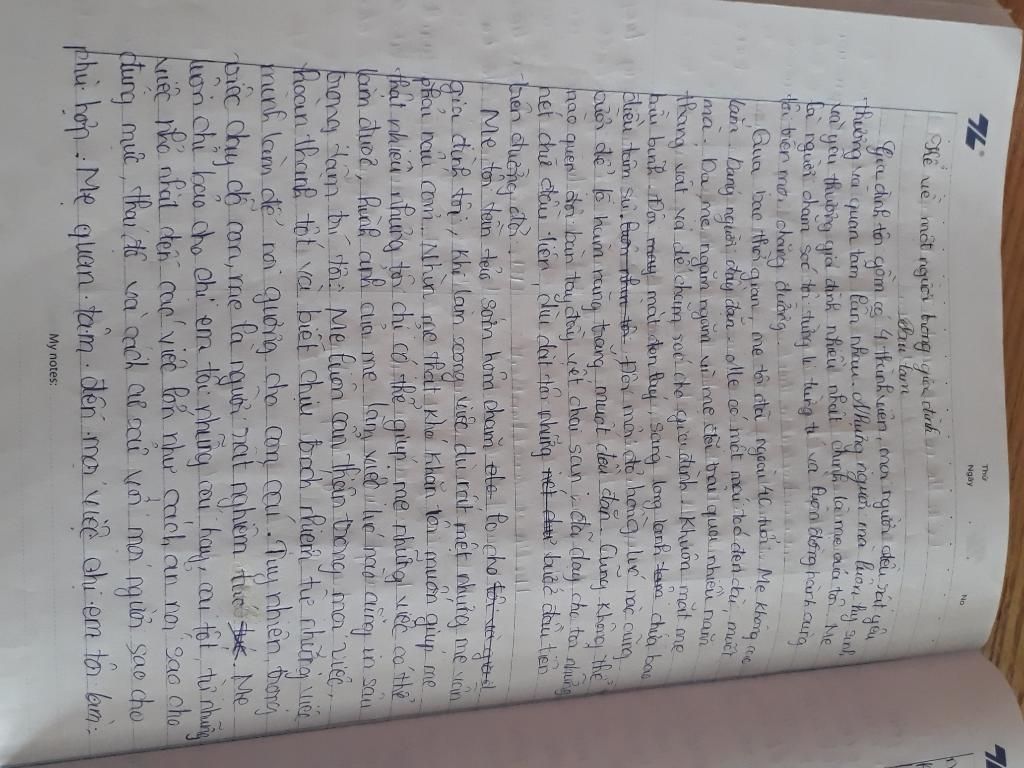 Thứ
Ngày
No
Kể về một người trong gia đình
Bài làm
Gia đình tôi gồm có 4 thành viên, mọi người đều rất yêu
thương và quan tâm lẫn nhau. Nhưng người mà luôn hy sinh
và yêu thương gia đình nhiều nhất chính là mẹ của tôi. Mẹ
là người chăm sóc tôi từng li từng tí và luôn đồng hành cùng
tôi trên mọi chặng đường.
Qua bao thời gian, mẹ tôi đã ngoài tuổi. Mẹ không cao
lắm, dáng người đầy đặn. Mẹ có mái tóc đen, mượt
mà. Da mẹ ngăm ngăm vì mẹ đã trải qua nhiều năm
tháng vất vả để chăm sóc cho gia đình. Khuôn mặt mẹ
bầu bĩnh. Đôi mắt đen láy, sáng long lanh chứa bao
điều tâm sự. Đôi môi đỏ hồng, lúc nào cũng
cười để lộ hàm răng trắng, mượt đều đặn. Cũng không thể
nào quên đôi bàn tay đầy vết chai sạn đã dạy cho tôi những
nét chữ đầu tiên, dìu dắt tôi những bước đầu tiên
trên đường đời.
Mẹ tôi tần tảo sớm hôm chăm lo cho
gia đình tôi, khi làm xong việc dù rất mệt nhưng mẹ vẫn
phải nấu cơm. Nhìn mẹ thật khó khăn tôi muốn giúp mẹ
thật nhiều nhưng tôi chỉ có thể giúp mẹ những việc có thể
làm được, hình ảnh của mẹ làm việc lúc nào cũng in sâu
trong tâm trí tôi. Mẹ luôn cẩn thận trong mọi việc,
hoàn thành tốt và biết chịu trách nhiệm từ những việc
mình làm để noi gương cho con cái. Tuy nhiên, trong
việc dạy dỗ con, mẹ là người rất nghiêm. Mẹ
luôn chỉ bảo cho chị em tôi những cái hay, cái tốt, từ những
việc nhỏ nhất đến các việc lớn như cách ăn nói sao cho
đúng mực, thái độ và cách cư xử với mọi người sao cho
phù hợp. Mẹ quan tâm đến mọi việc chị em tôi làm.
My notes: